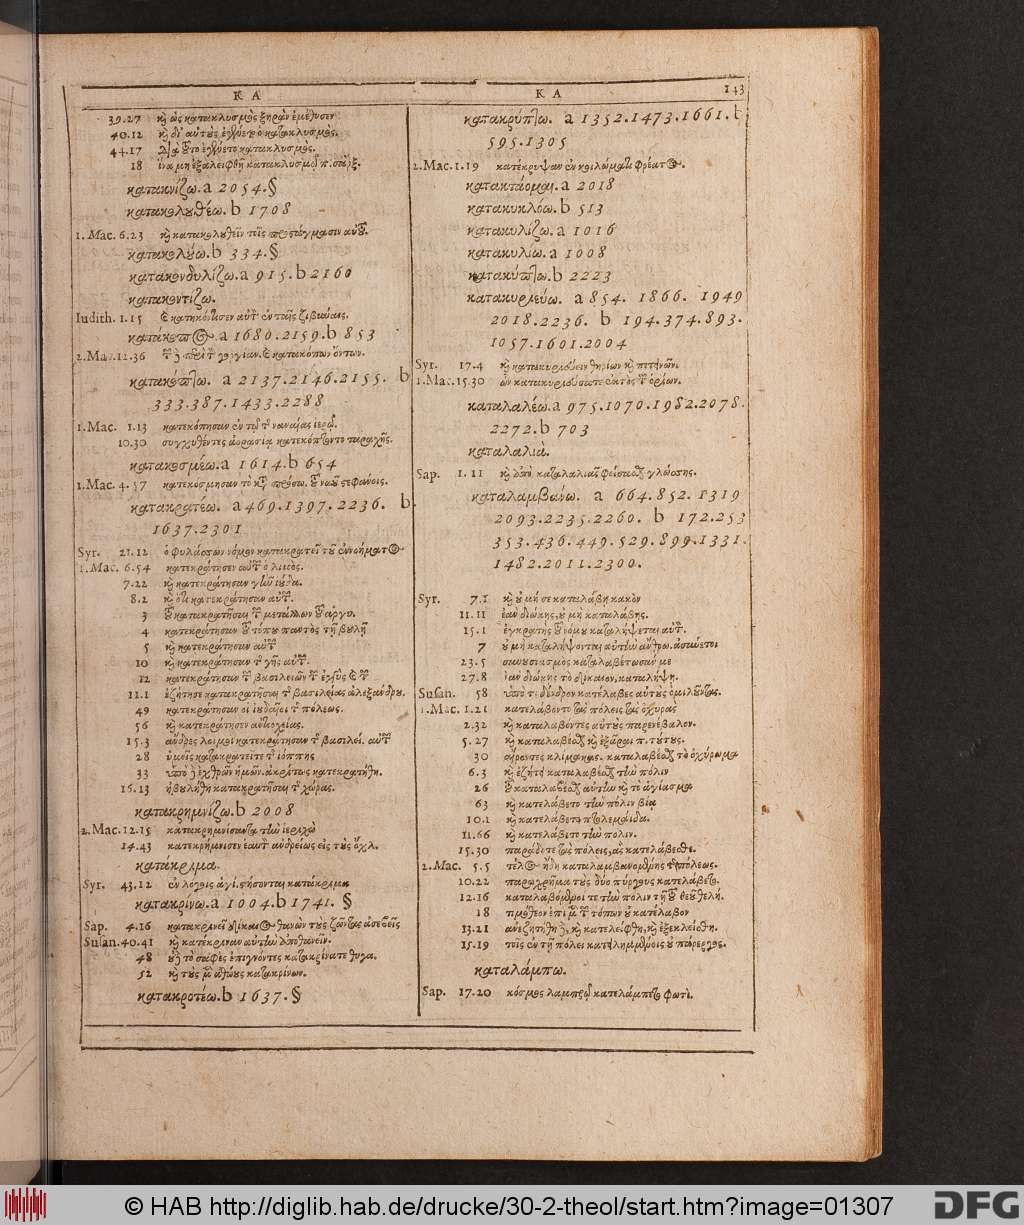 ΚΑ
ΚΑ 143
39.27 καὶ ὡς κατακλυσμὸς ξηρὰν ἐμέθυσεν
40.12 καὶ δι' αὐτοὺς ἐγένετο κατακλυσμὸς.
44.17 Διὰ τοῦτο ἐγένετο κατακλυσμὸς.
18 ἵνα μὴ ἐξαλειφθῇ κατακλυσμῷ π. σὰρξ.
κατακνίζω. a 2054. §
κατακολουθέω. b 1708
1. Mac. 6.23 καὶ κατακολουθεῖν τοῖς προστάγμασιν αὐτοῦ.
κατακολούω. b 334. §
κατακονδυλίζω. a 915. b 2160
κατακοντίζω.
Iudith. 1.15 καὶ κατηκόντισεν αὐτὸν ἐν ταῖς ζιβύναις.
κατάκοπος. a 1680. 2159. b 853
2. Mac. 12.36 κατακόπων ὄντων.
κατακόπτω. a 2137. 2146. 2155. b
333. 387. 1433. 2288
1. Mac. 1.13 κατεκόπησαν ἐν τῷ τῆς ναναίας ἱερῷ.
10.30 συγχυθέντες ἀορασίᾳ κατεκόπτοντο ταραχῆς.
κατακοσμέω. a 1614. b 654
1. Mac. 4.57 κατεκόσμησαν τὸ κατὰ πρόσω. τοῦ ναοῦ στεφάνοις.
κατακρατέω. a 469. 1397. 2236. b
1637. 2301
Syr. 21.12 ὁ φυλάσσων νόμον κατακρατεῖ τοῦ ἐννοήματος
1. Mac. 6.54 κατεκράτησεν αὐτῶν ὁ λιμὸς.
7.22 καὶ κατεκράτησαν γῆν ἰούδα.
8.2 καὶ ὅτι κατεκράτησαν αὐτῶν.
3 τοῦ κατακρατῆσαι τῶν μετάλλων τοῦ ἀργυ.
4 κατεκράτησαν τοῦ τόπου παντὸς τῇ βουλῇ
5 καὶ κατεκράτησαν αὐτῶν
10 καὶ κατεκράτησαν τῆς γῆς αὐτῶν.
12 κατεκράτησαν τῶν βασιλειῶν τῶν ἐγγὺς καὶ τῶν
11.1 ἐζήτησε κατακρατῆσαι τῆς βασιλείας ἀλεξάνδρου.
49 κατεκράτησαν οἱ ἰουδαῖοι τῆς πόλεως.
56 καὶ κατεκράτησεν ἀντιοχείας.
15.3 ἄνδρες λοιμοὶ κατεκράτησαν τῆς βασιλεί. αὐτῶν
28 ὑμεῖς κατακρατεῖτε τῆς ἰόππης
33 ὑπὸ δὲ ἐχθρῶν ἡμῶν. ἀκρίτως κατεκρατήθη.
16.13 ἠβουλήθη κατακρατῆσαι τῆς χώρας.
κατακρημνίζω. b 2008
2. Mac. 12.15 κατακρημνίσαντα τὴν ἱεριχὼ
14.43 κατεκρήμνισεν ἑαυτὸν ἀνδρείως εἰς τοὺς ὄχλ.
κατάκριμα.
Syr. 43.12 ἐν λόγοις ἁγί. στήσονται κατάκριμα
κατακρίνω. a 1004. b 1741. §
Sap. 4.16 κατακρινεῖ δίκαιος θανὼν τοὺς ζῶντας ἀσεβεῖς
Susan. 40.41 καὶ κατέκριναν αὐτὴν ἀποθανεῖν.
48 οὐδὲ τὸ σαφὲς ἐπιγνόντες κατακρίνατε θυγα.
52 καὶ τοὺς μὲν ἀθώους κατακρίνων.
κατακροτέω. b 1637. §
κατακρύπτω. a 1352. 1473. 1661. b
595. 1305
2. Mac. 1.19 κατέκρυψαν ἐν κοιλώματι φρέατος.
κατακτάομαι. a 2018
κατακυκλόω. b 513
κατακυλίζω. a 1016
κατακυλίω. a 1008
κατακύπτω. b 2223
κατακυριεύω. a 854. 1866. 1949
2018. 2236. b 194. 374. 893.
1057. 1601. 2004
Syr. 17.4 καὶ κατακυριεύειν θηρίων καὶ πετηνῶν.
1. Mac. 15.30 ὧν κατακυριεύσατε ἐκτὸς τῶν ὁρίων.
καταλαλέω. a 975. 1070. 1982. 2078.
2272. b 703
καταλαλιὰ.
Sap. 1.11 καὶ ἀπὸ καταλαλιᾶς φείσασθε γλώσσης.
καταλαμβάνω. a 664. 852. 1319
2093. 2235. 2260. b 172. 253
353. 436. 449. 529. 899. 1331.
1482. 2011. 2300.
Syr. 7.1 καὶ οὐ μή σε καταλάβῃ κακὸν
11.11 ἐὰν διώκῃς, οὐ μὴ καταλάβῃς.
15.1 ἐγκρατὴς τοῦ νόμου καταλήψεται αὐτήν.
7 οὐ μὴ καταλήψονται αὐτὴν ἄνθρω. ἀσύνετοι
23.5 συνουσιασμὸς καταλαβέτωσάν με
27.8 ἐὰν διώκῃς τὸ δίκαιον, καταλήψῃ.
Susan. 58 ὑπὸ τί δένδρον κατέλαβες αὐτοὺς ὁμιλοῦντας.
1. Mac. 1.21 κατελάβοντο τὰς πόλεις τὰς ὀχυρὰς
2.32 καὶ καταλαβόντες αὐτοὺς παρενέβαλον.
5.27 καὶ καταλαβέσθαι καὶ ἐξᾶραι π. τούτους.
30 αἴροντες κλίμακας. καταλαβέσθαι τὸ ὀχύρωμα
6.3 καὶ ἐζήτει καταλαβέσθαι τὴν πόλιν
26 τοῦ καταλαβέσθαι αὐτὴν καὶ τὸ ἁγίασμα
63 καὶ κατελάβετο τὴν πόλιν βίᾳ
10.1 καὶ κατελάβετο πτολεμαίδα.
11.66 καὶ κατελάβετο τὴν πόλιν.
15.30 παράδοτε τὰς πόλεις, ἃς κατελάβεσθε.
2. Mac. 5.5 τέλος ἤδη καταλαμβανομένης τῆς πόλεως.
10.22 παραχρῆμα τοὺς δύο πύργους κατελάβετο.
12.16 καταλαβόμενοί τε τὴν πόλιν τῇ τοῦ θεοῦ θελή.
18 τιμόθεον ἐπὶ μὲν τῶν τόπων οὐ κατέλαβον
13.21 ἀνεζητήθη δὲ, καὶ κατελείφθη, καὶ ἐξεκλείσθη.
15.19 τοῖς ἐν τῇ πόλει κατειλημμένοις οὐ πάρεργος.
καταλάμπω.
Sap. 17.20 κόσμος λαμπρῷ κατελάμπετο φωτὶ.
© HAB http://diglib.hab.de/drucke/30-2-theol/start.htm?image=01307
DFG